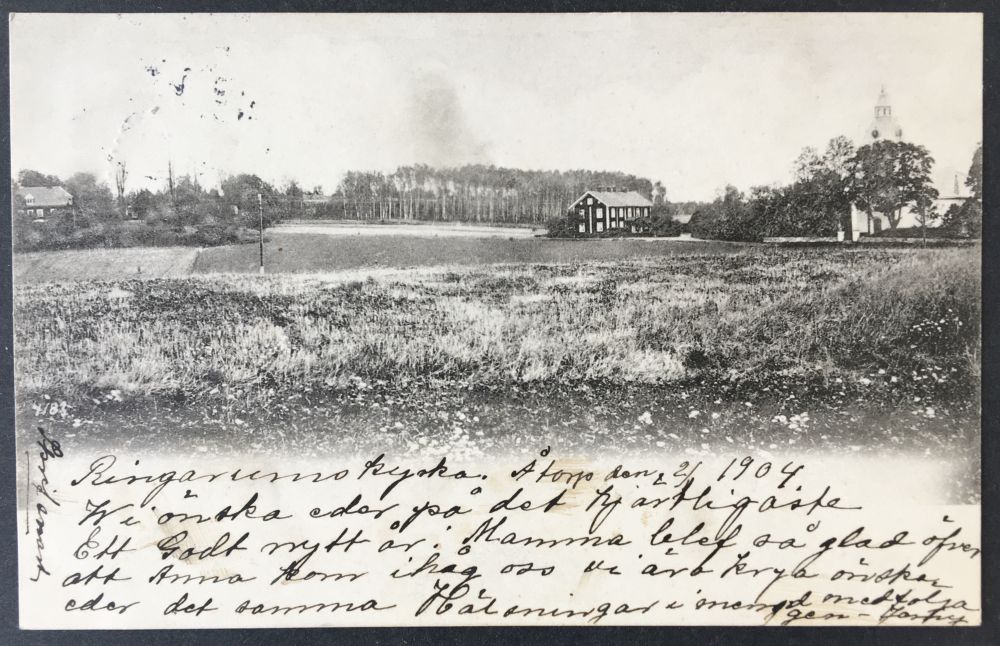 Ringarums kyrka. Åtorp den 2/1 1904
Wi önska eder på det hjärtligaste
Ett Godt nytt år. Mamma blef så glad öfver
att Anna kom ihåg oss vi ära krya önskar
eder det samma Hälsningar i mengd
gen -
4183